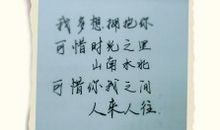 我多想拥抱你
可惜时光之里
山南水北
可惜你我之间
人来人往